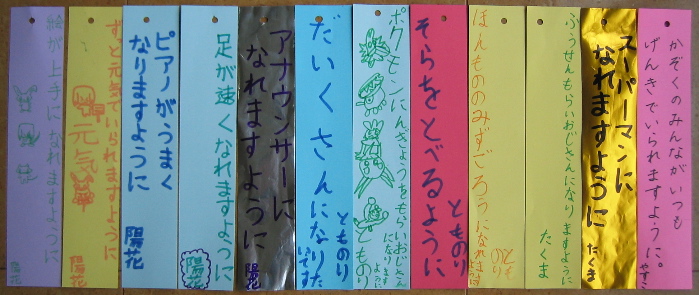 かぞくのみんながいつも
げんきでいられますように。
やすこ
スーパーマンに
なれますように
たくま
ふうせんもらいおじさんになりますように
たくま
ほんもののみずごろうになれますように
とものり
そらをとべるように
とものり
ポケモンにんぎょうをもらいおじさん
になりますように
とものり
だいくさんになりたいです
とものり
アナウンサーに
なれますように
陽花
足が速くなれますように
陽花
ピアノがうまく
なりますように
陽花
ずっと元気でいられますように
元気
陽花
絵が上手になれますように
陽花